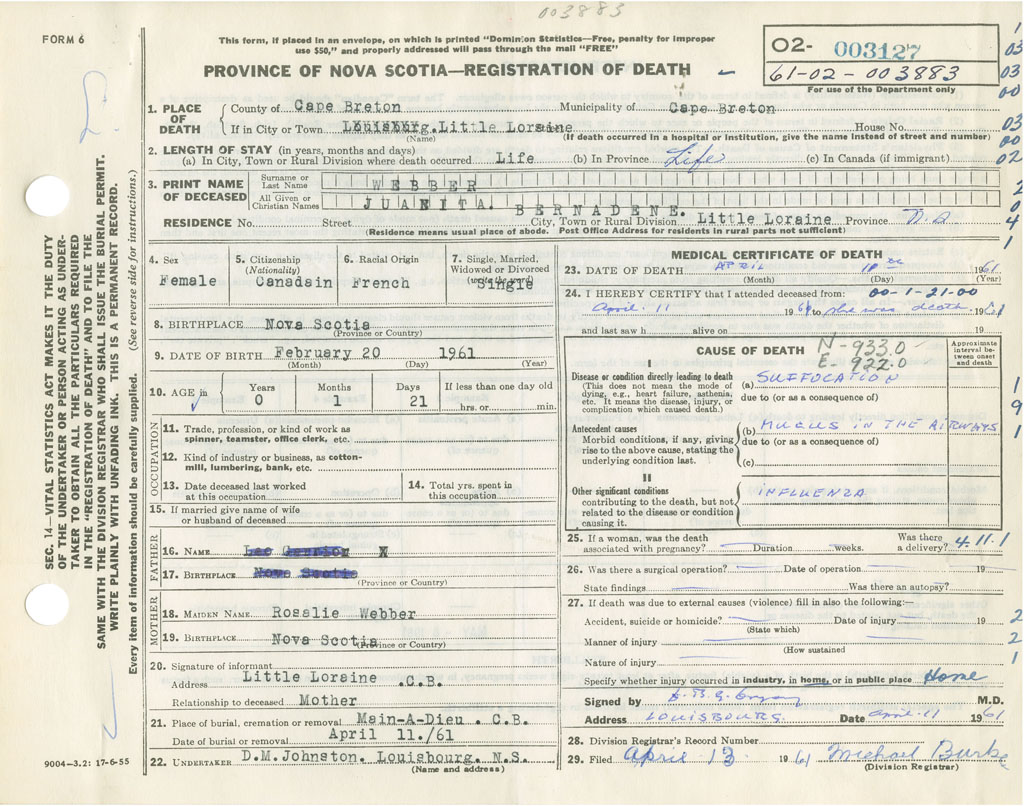 003883
FORM 6
This form, if placed in an envelope, on which is printed "Dominion Statistics—Free, penalty for improper
use $50," and properly addressed will pass through the mail "FREE"
PROVINCE OF NOVA SCOTIA—REGISTRATION OF DEATH
02- 003127
61-02-003883
For use of the Department only
1. PLACE OF DEATH
County of Cape Breton Municipality of Cape Breton
If in City or Town Louisburg. Little Loraine House No.
(Name) (If death occurred in a hospital or institution, give the name instead of street and number)
2. LENGTH OF STAY (in years, months and days)
(a) In City, Town or Rural Division where death occurred Life (b) In Province Life (c) In Canada (if immigrant)
3. PRINT NAME OF DECEASED
Surname or Last Name WEBBER
All Given or Christian Names JUANITA. BERNADENE.
RESIDENCE No. Street City, Town or Rural Division Little Loraine Province N.S
(Residence means usual place of abode. Post Office Address for residents in rural parts not sufficient)
4. Sex Female
5. Citizenship (Nationality) Canadain
6. Racial Origin French
7. Single, Married, Widowed or Divorced (write the word) Single
8. BIRTHPLACE Nova Scotia
(Province or Country)
9. DATE OF BIRTH February 20 1961
(Month) (Day) (Year)
10. AGE in Years 0 Months 1 Days 21 If less than one day old hrs. or min.
OCCUPATION
11. Trade, profession, or kind of work as
spinner, teamster, office clerk, etc.
12. Kind of industry or business, as cotton-
mill, lumbering, bank, etc.
13. Date deceased last worked
at this occupation
14. Total yrs. spent in
this occupation
15. If married give name of wife
or husband of deceased
FATHER
16. NAME
17. BIRTHPLACE Nova Scotia
(Province or Country)
MOTHER
18. MAIDEN NAME Rosalie Webber
19. BIRTHPLACE Nova Scotia
(Province or Country)
20. Signature of informant
Address Little Loraine .C.B.
Relationship to deceased Mother
21. Place of burial, cremation or removal Main-A-Dieu . C.B.
Date of burial or removal April 11./61
22. UNDERTAKER D.M.Johnston. Louisbourg. N.S.
(Name and address)
9004-3.2: 17-6-55
MEDICAL CERTIFICATE OF DEATH
23. DATE OF DEATH APRIL 1961
(Month) (Day) (Year)
24. I HEREBY CERTIFY that I attended deceased from: 00-1-21-00
April 11 1961 to she was death 1961
and last saw h alive on 19
CAUSE OF DEATH N-933.0
E-922.0
Approximate interval between onset and death
I
Disease or condition directly leading to death
(This does not mean the mode of
dying, e.g., heart failure, asthenia,
etc. It means the disease, injury, or
complication which caused death.)
(a) SUFFOCATION
due to (or as a consequence of)
Antecedent causes
Morbid conditions, if any, giving
rise to the above cause, stating the
underlying condition last.
(b) MUCUS IN THE AIRWAYS
due to (or as a consequence of)
(c)
II
Other significant conditions
contributing to the death, but not
related to the disease or condition
causing it.
INFLUENZA
25. If a woman, was the death
associated with pregnancy? Duration weeks. Was there
a delivery? 4.11.1
26. Was there a surgical operation? Date of operation 19
State findings Was there an autopsy?
27. If death was due to external causes (violence) fill in also the following:—
Accident, suicide or homicide? Date of injury 19
(State which)
Manner of injury
(How sustained
Nature of injury
Specify whether injury occurred in industry, in home, or in public place Home
Signed by M.D.
Address LOUISBOURG Date April 11 1961
28. Division Registrar's Record Number
29. Filed April 13 1961 Michael Burke
(Division Registrar)
SEC. 14—VITAL STATISTICS ACT MAKES IT THE DUTY
OF THE UNDERTAKER OR PERSON ACTING AS UNDER-
TAKER TO OBTAIN ALL THE PARTICULARS REQUIRED
IN THE "REGISTRATION OF DEATH" AND TO FILE THE
SAME WITH THE DIVISION REGISTRAR WHO SHALL ISSUE THE BURIAL PERMIT.
WRITE PLAINLY WITH UNFADING INK. THIS IS A PERMANENT RECORD.
Every item of information should be carefully supplied. (See reverse side for instructions.)
1
03
03
00
03
00
02
2
0
4
1
1
9
1
2
2
1